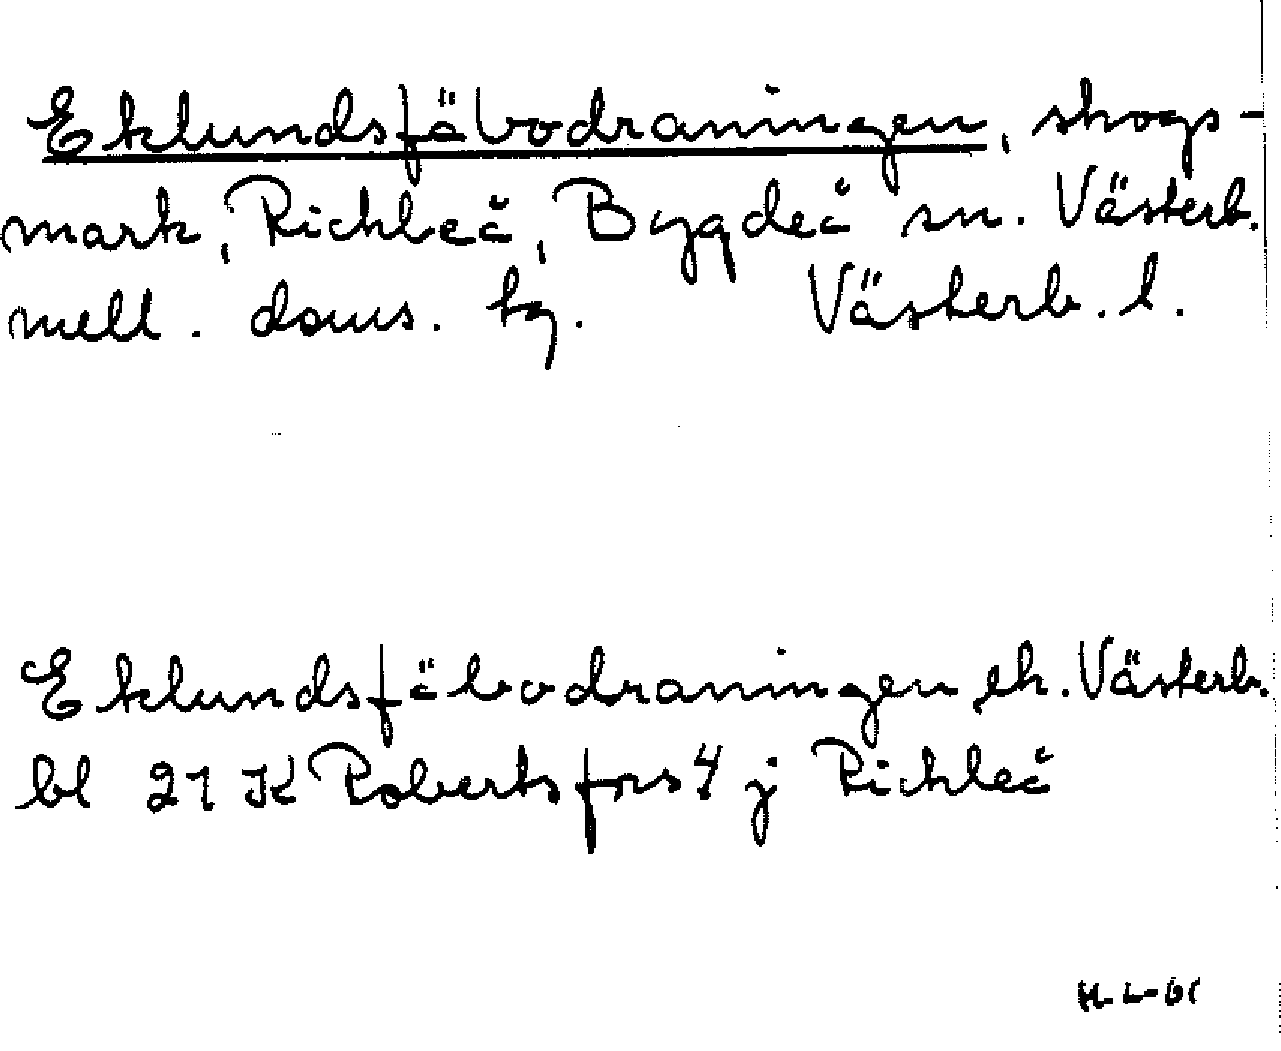 Eklundsfäbodraningen, skogs-
mark, Rickleå, Bygdeå sn. Västerb.
mell. doms. tg. Västerb. l.
Eklundsfäbodraningen, ek. Västerb.
bl 21 K Robertsfors 4 j Rickleå